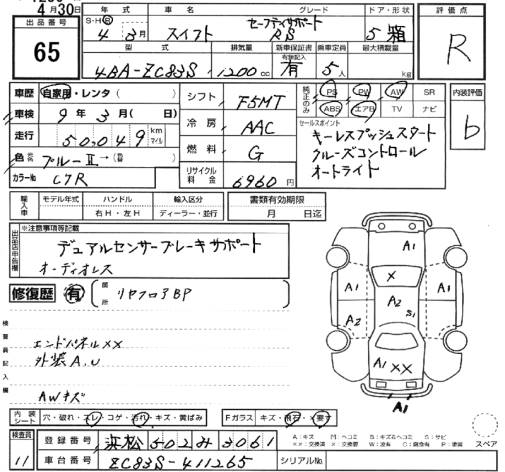 4月30日
出品番号 65
年式 車名 グレード ドア・形状 評価点
S・H・R 4年3月 スイフト セーフティサポート RS 5 箱 R
型式 排気量 新車保証書 有効記入 乗車定員 最大積載量
4BA-ZC83S 1200cc 有 5人 kg
車歴 自家用・レンタ( )
車検 9年3月( 日)
走行 50,049 km マイル
色 ブルーⅡ→( )
カラーNo C7R
シフト F5MT
冷房 AAC
燃料 G
リサイクル料金 6960円
純正のみ PS PW AW SR
ABS エアB TV ナビ
内装評価 b
セールスポイント
キーレスプッシュスタート
クルーズコントロール
オートライト
輸入車 モデル年式 ハンドル 輸入区分 書類有効期限
右H・左H ディーラー・並行 月 日迄
出品店申告欄 ※注意事項等記載
デュアルセンサーブレーキサポート
オーディオレス
修復歴 有 箇所 リヤフロアBP
検査員記入欄
エンドパネルXX
外装A,U
AWキズ
A1
X
A1 A2 A1
S1
A2 A2
A1 XX
A1
内装シート 穴・破れ・スレ・コゲ・汚れ・キズ・黄ばみ Fガラス キズ・飛石・ X要す
スペア
検査員 11
登録番号 浜松502み3061
車台番号 ZC83S-411265 シリアルNo